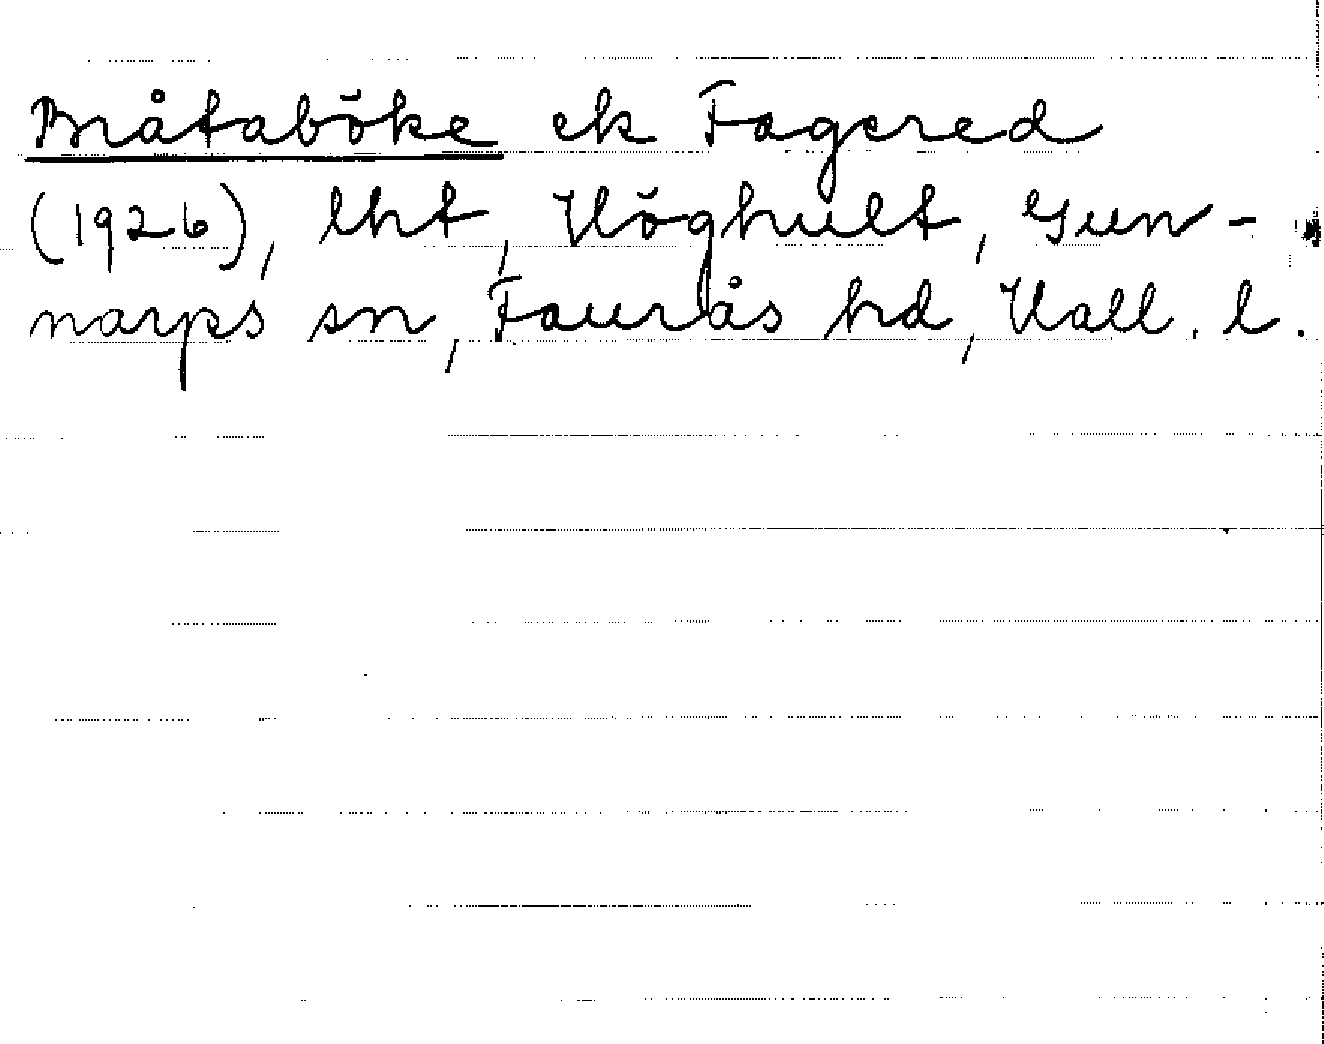 Bråtaböke ek Fagered
(1926), lht, Höghult, Gun-
narps sn, Faurås hd, Hall. l.